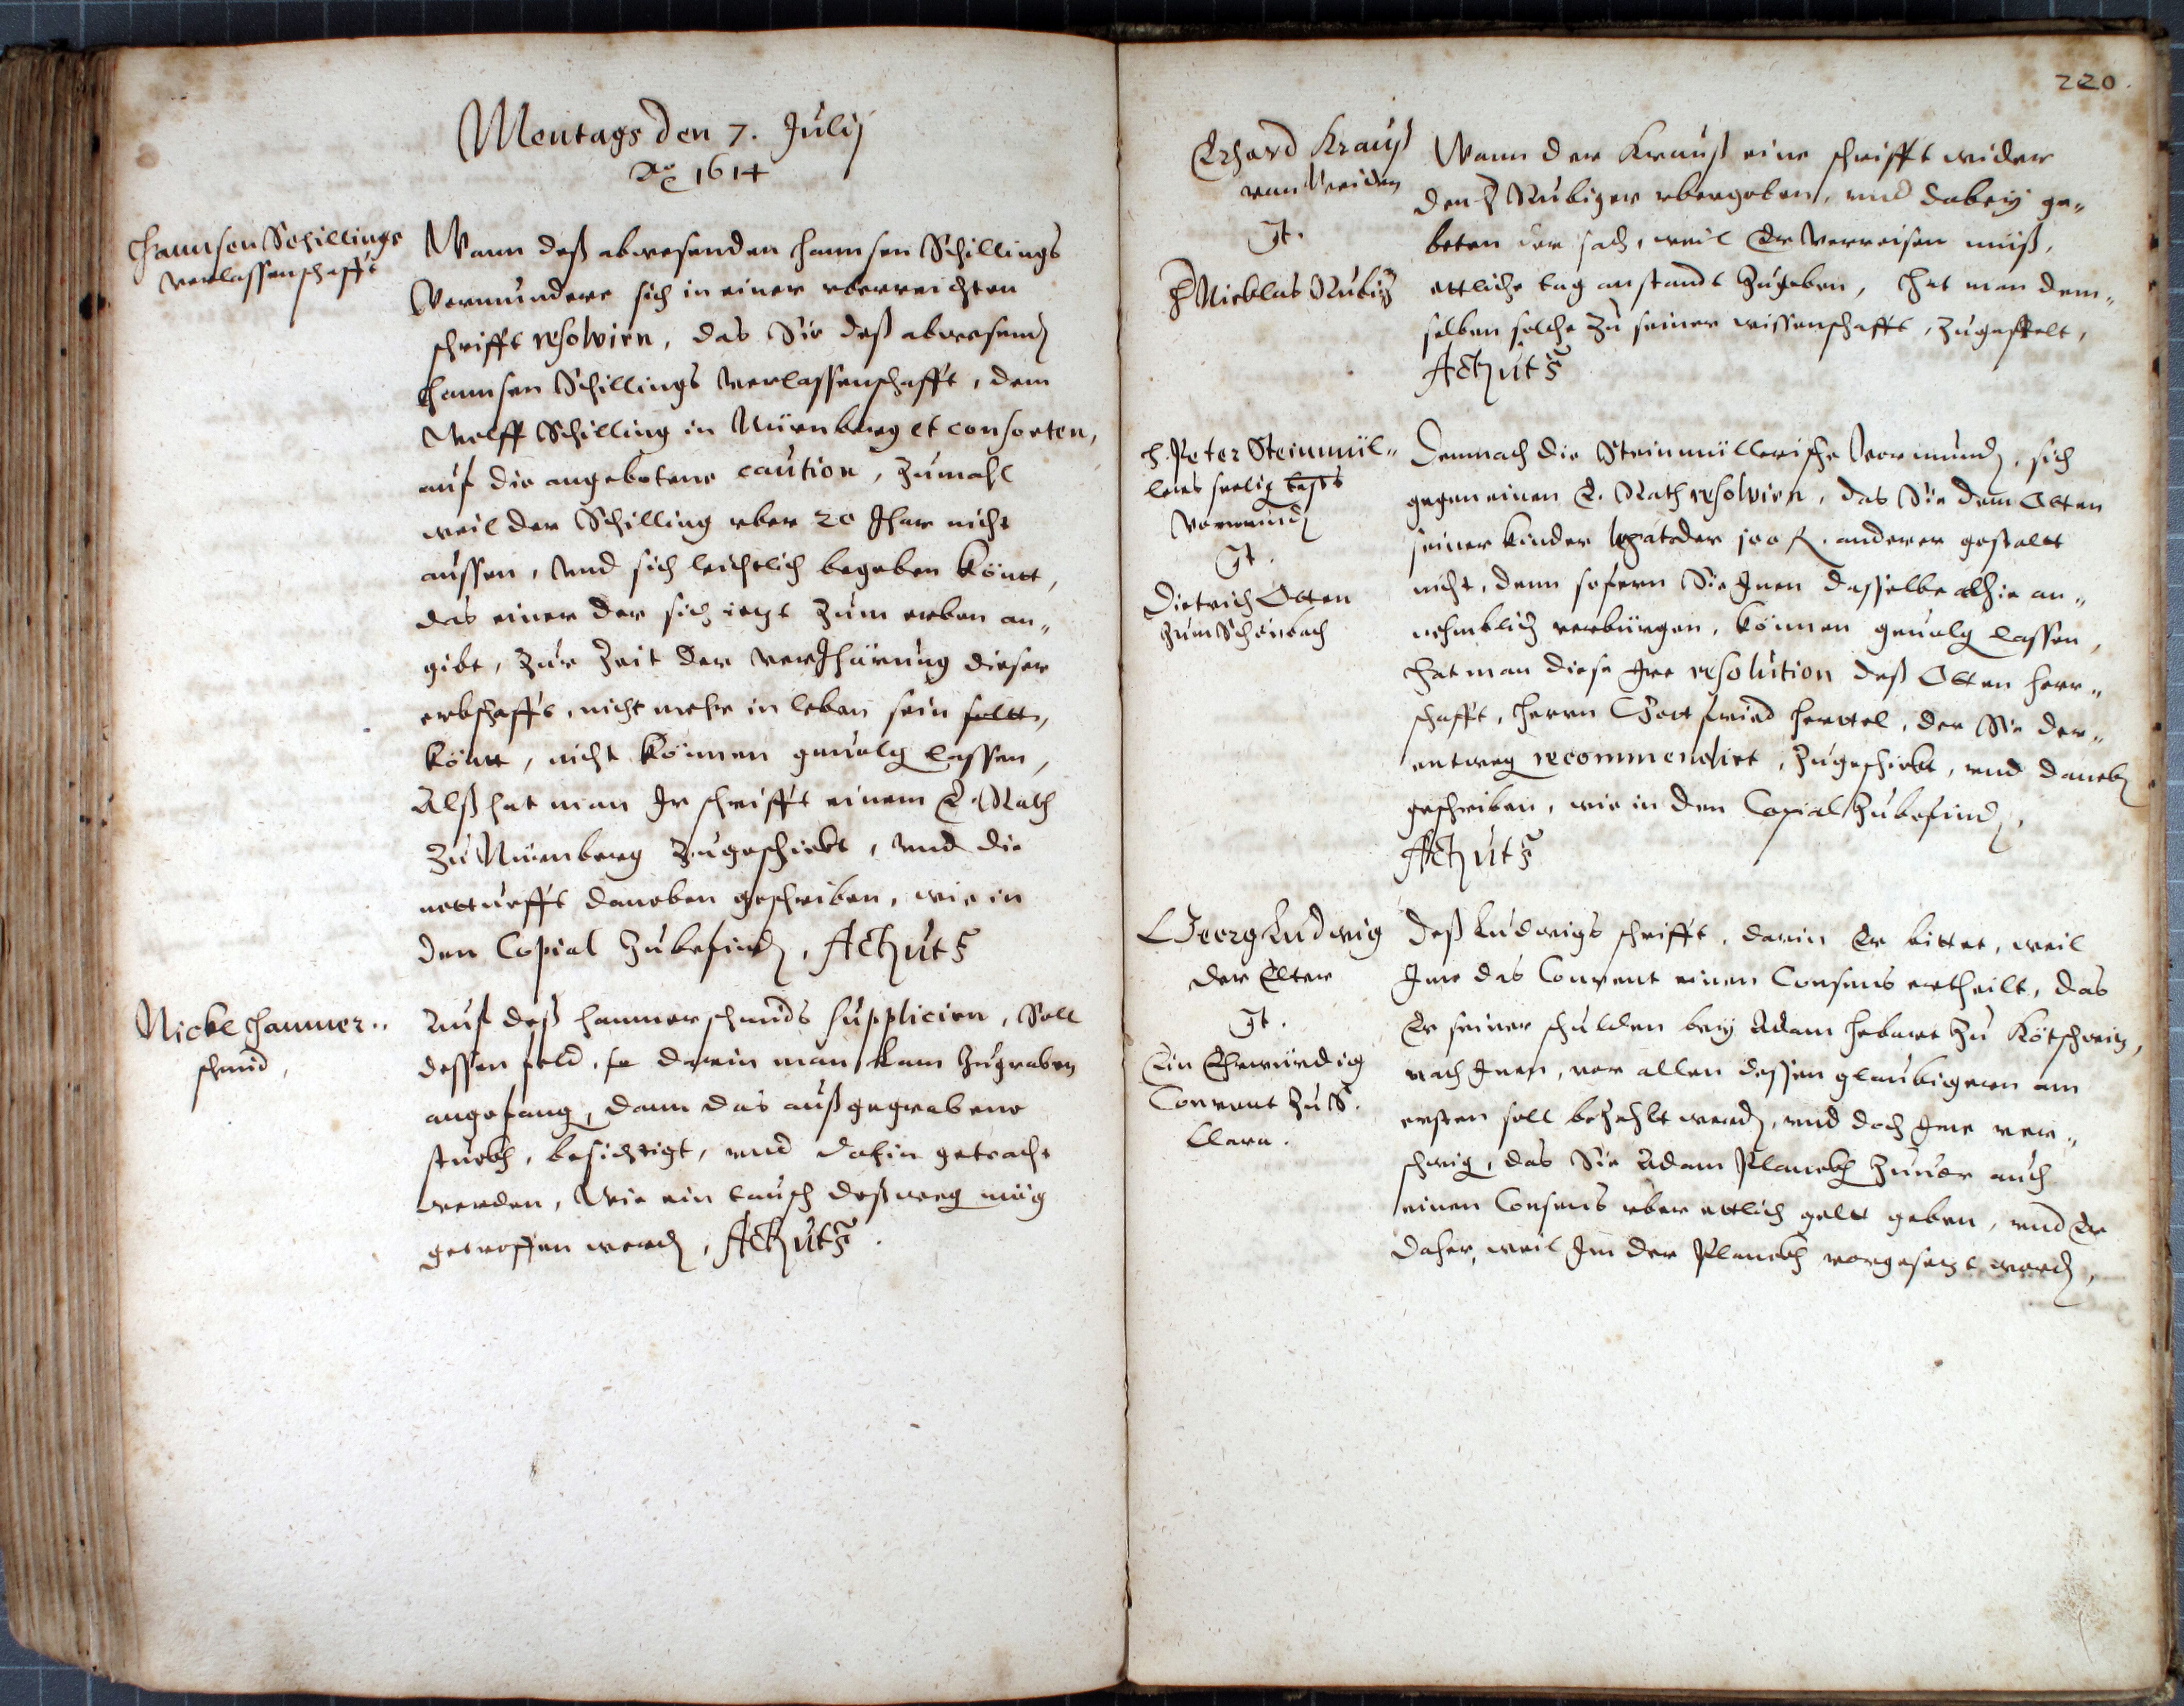 Montags den 7. Julij
Ao 1614
Hannsen Schillings
verlassenschafft
Wann deß abwesenden Hannsen Schillings
Vormundere sich in einer vberreichten
schrifft resolvirn, das Sie deß abwesend
Hannsen Schillings verlassenschafft, dem
Wolff Schilling in Nürnberg et consorten,
auf die angebotene caution, zumahl
weil der Schilling vber 20 Jhar nicht
aussen, vnd sich leichtlich begeben köntt,
das einer der sich ietzt zum erben an„
gibt, zur zeit der verJhärung dieser
erbschafft, nicht mehr in leben sein soltt,
köntt, nicht können geuolg lassen,
Alß hat man Ir schrifft einem E. Rath
zu Nürmberg zugeschickt, vnd die
notturfft daneben geschriben, wie in
den Copial zubefind,
Nickl Hammer„
schmid,
Auf deß Hammerschmids suppliciern, Soll
dessen feld, so darein man kam zugraben
angefang, dann das außgegrabene
stuckh, besichtigt, vnd dahin getracht
werden, Wie ein tausch deßweg müg
getroffen werd,
220.
Erhard Krauß
von Weiden
Wann der Krauß eine schrifft wider
den H Rubiger vbergeben, vnd dabey ge„
Jt.
beten der sach, weil Er verreisen muß,
H Nicklas Rubig
ettliche tag anstandt zugeben, Hat man dem„
selben solche zu seiner wissenschafft, zugestelt,
H. Peter Steinmül„
lers seelig
Vormund
Jt.
Dietrich Otten
zum Schönbach
Demnach die Steinmüllerische Vormund, sich
gegen einen E. Rath resolvirn, das Sie dem Otten
seiner kinder legat der 100 fl. anderer gestaltt
nicht, denn sofern Sie Inen dasselbe alhie an„
nehmblich verbürgen, können geuolg lassen,
Hat man diese Ire resolution deß Otten herr„
schafft, Herrn Gottfried Hertel, der Sie der„
entweg recommendirt, zugeschickt, vnd daneb
geschriben, wie in den Copial zubefind,
Georg Ludwig
der Elter
Jt.
Ein Ehrwürdig
Conuent zu S.
Clara.
Deß Ludwigs schrifft, darin Er bittet, weil
Ime das Conuent einen Consens ertheilt, das
Er seiner schulden bey Adam Hebart zu Kötschreitz,
nach Inen, vor allen dessen glaubigern am
ersten soll bezahlt werd, vnd doch Ime ver„
schwig, das Sie Adam Planckh zuuor auch
einen Consens vber ettlich geltt geben, vnd Er
daher, weil Im der Planckh vorgesetzt word,